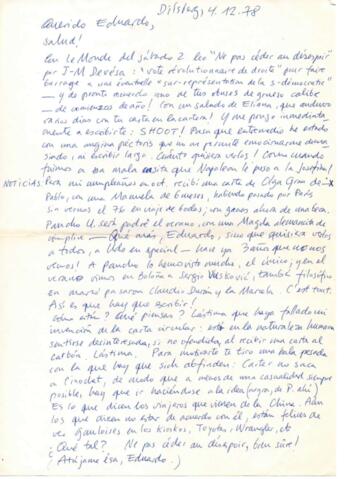 Dilsberg, 4.12.78
Querido Eduardo,
salud!
En Le Monde del sábado 2 leo "Ne pas céder au désespoir"
por J-M Devésa: "vote révolutionnaire de droite" pour faire
barrage a une éventuelle "sur-représentation de la s-démocratie"
— y de pronto acuerdo uno de tus obuses de grueso calibre
— de comienzos de año! Con un saludo de Eliana, que anduvo
varios días con tu carta en la cartera! Y me pongo inmediata
mente a escribirte: SHOOT! Pasa que entremedio he estado
con una angina pectoris que no me permite emocionarme dema
siado, ni escribir largo. Cuánto quisiera verlos! Como cuando
fuimos a esa mala casita que Napoleon le puso a la Josefina!
NOTICIAS: Para mi cumpleaños en oct. recibí una carta de Olga Grau de
Pablo, con una Manuela de 6 meses, habiendo pasado por París
sin vernos el 76 en viaje de bodas; con ganas ahora de una beca.
Pancho U. será padre el verano, con una Magda alemana de
cómplice — Qué más, Eduardo, sino que quisiera verlos
a todos, a Udo en special — hace ya 3 años que no nos
vemos! A Pancho lo hemos visto mucho, el único; y en el
verano vimos en Boloña a Sergio Vusković, también filósofo
en marzo pasaron Claudio Durán y la Marcela. C'est tout.
Así es que hay que escribir!
Cómo están? Qué piensan? Lástima que haya fallado mi
invención de la carta circular: está en la naturaleza humana
sentirse desinteresado, si no ofendido, al recibir una carta al
carbón. Lástima. Para motivarte te tiro una bala pasada
con la que hay que sich abfinden: Carter no saca
a Pinochet, de modo que a menos de una casualidad siempre
posible, hay que ir haciéndose a la idea (negra, de P. ahí)
Es lo que dicen los viajeros que vienen de la China. Aún
los que dicen no estar de acuerdo con él, están felices de
ver Gauloises en los kioskos, Toyotas, Wrangler, etc
¿Qué tal? Ne pas céder au désespoir, bien sûre!
(Atájame ésa, Eduardo.)